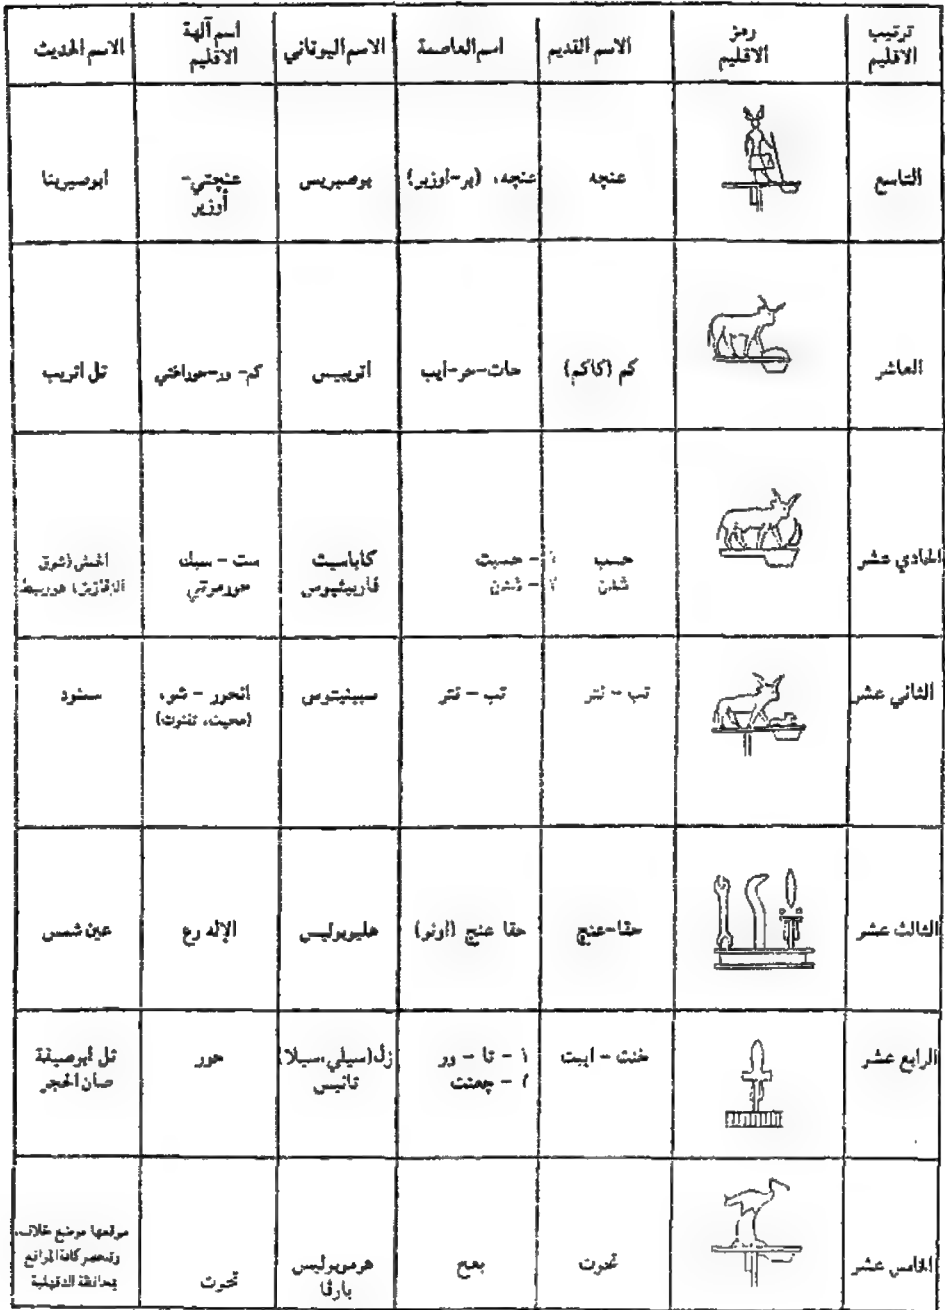 ترتيب الاقليم
رمز الاقليم
الاسم القديم
اسم العاصمة
الاسم اليوناني
اسم آلهة الاقليم
الاسم الحديث
التاسع
عنجه
عنجه، (بر-اوزير)
بوصيريس
عنجتي- أوزير
ابوصيربنا
العاشر
كم (كاكم)
حات-حر-ايب
اتريبيس
كم- ور-حوراختي
تل اتريب
الحادي عشر
حسب
شدن
١ - حسبت
٢ - شدن
كاباسيت
فاربيثيوس
ست - سبك
حورمرتي
شرق
الزقازيق) هوربيط
الثاني عشر
تب - نتر
تب - نتر
سبينيتوس
انحرر - شو،
(محيت، تفنوت)
سمنود
الثالث عشر
حقا-عنج
حقا عنج (اونو)
هليوبوليس
الإله رع
عين شمس
الرابع عشر
خنت - ايبت
١ - تا - ور
٢ - جعنت
زل(سيلي،سيلا)
تانيس
حور
تل أبوصيفة
صان الحجر
الخامس عشر
تحوت
بعح
هرموبوليس
بارفا
تحوت
موقعها موضع خلاف،
وتنحصر كافة المواقع
بمحافظة الدقهلية